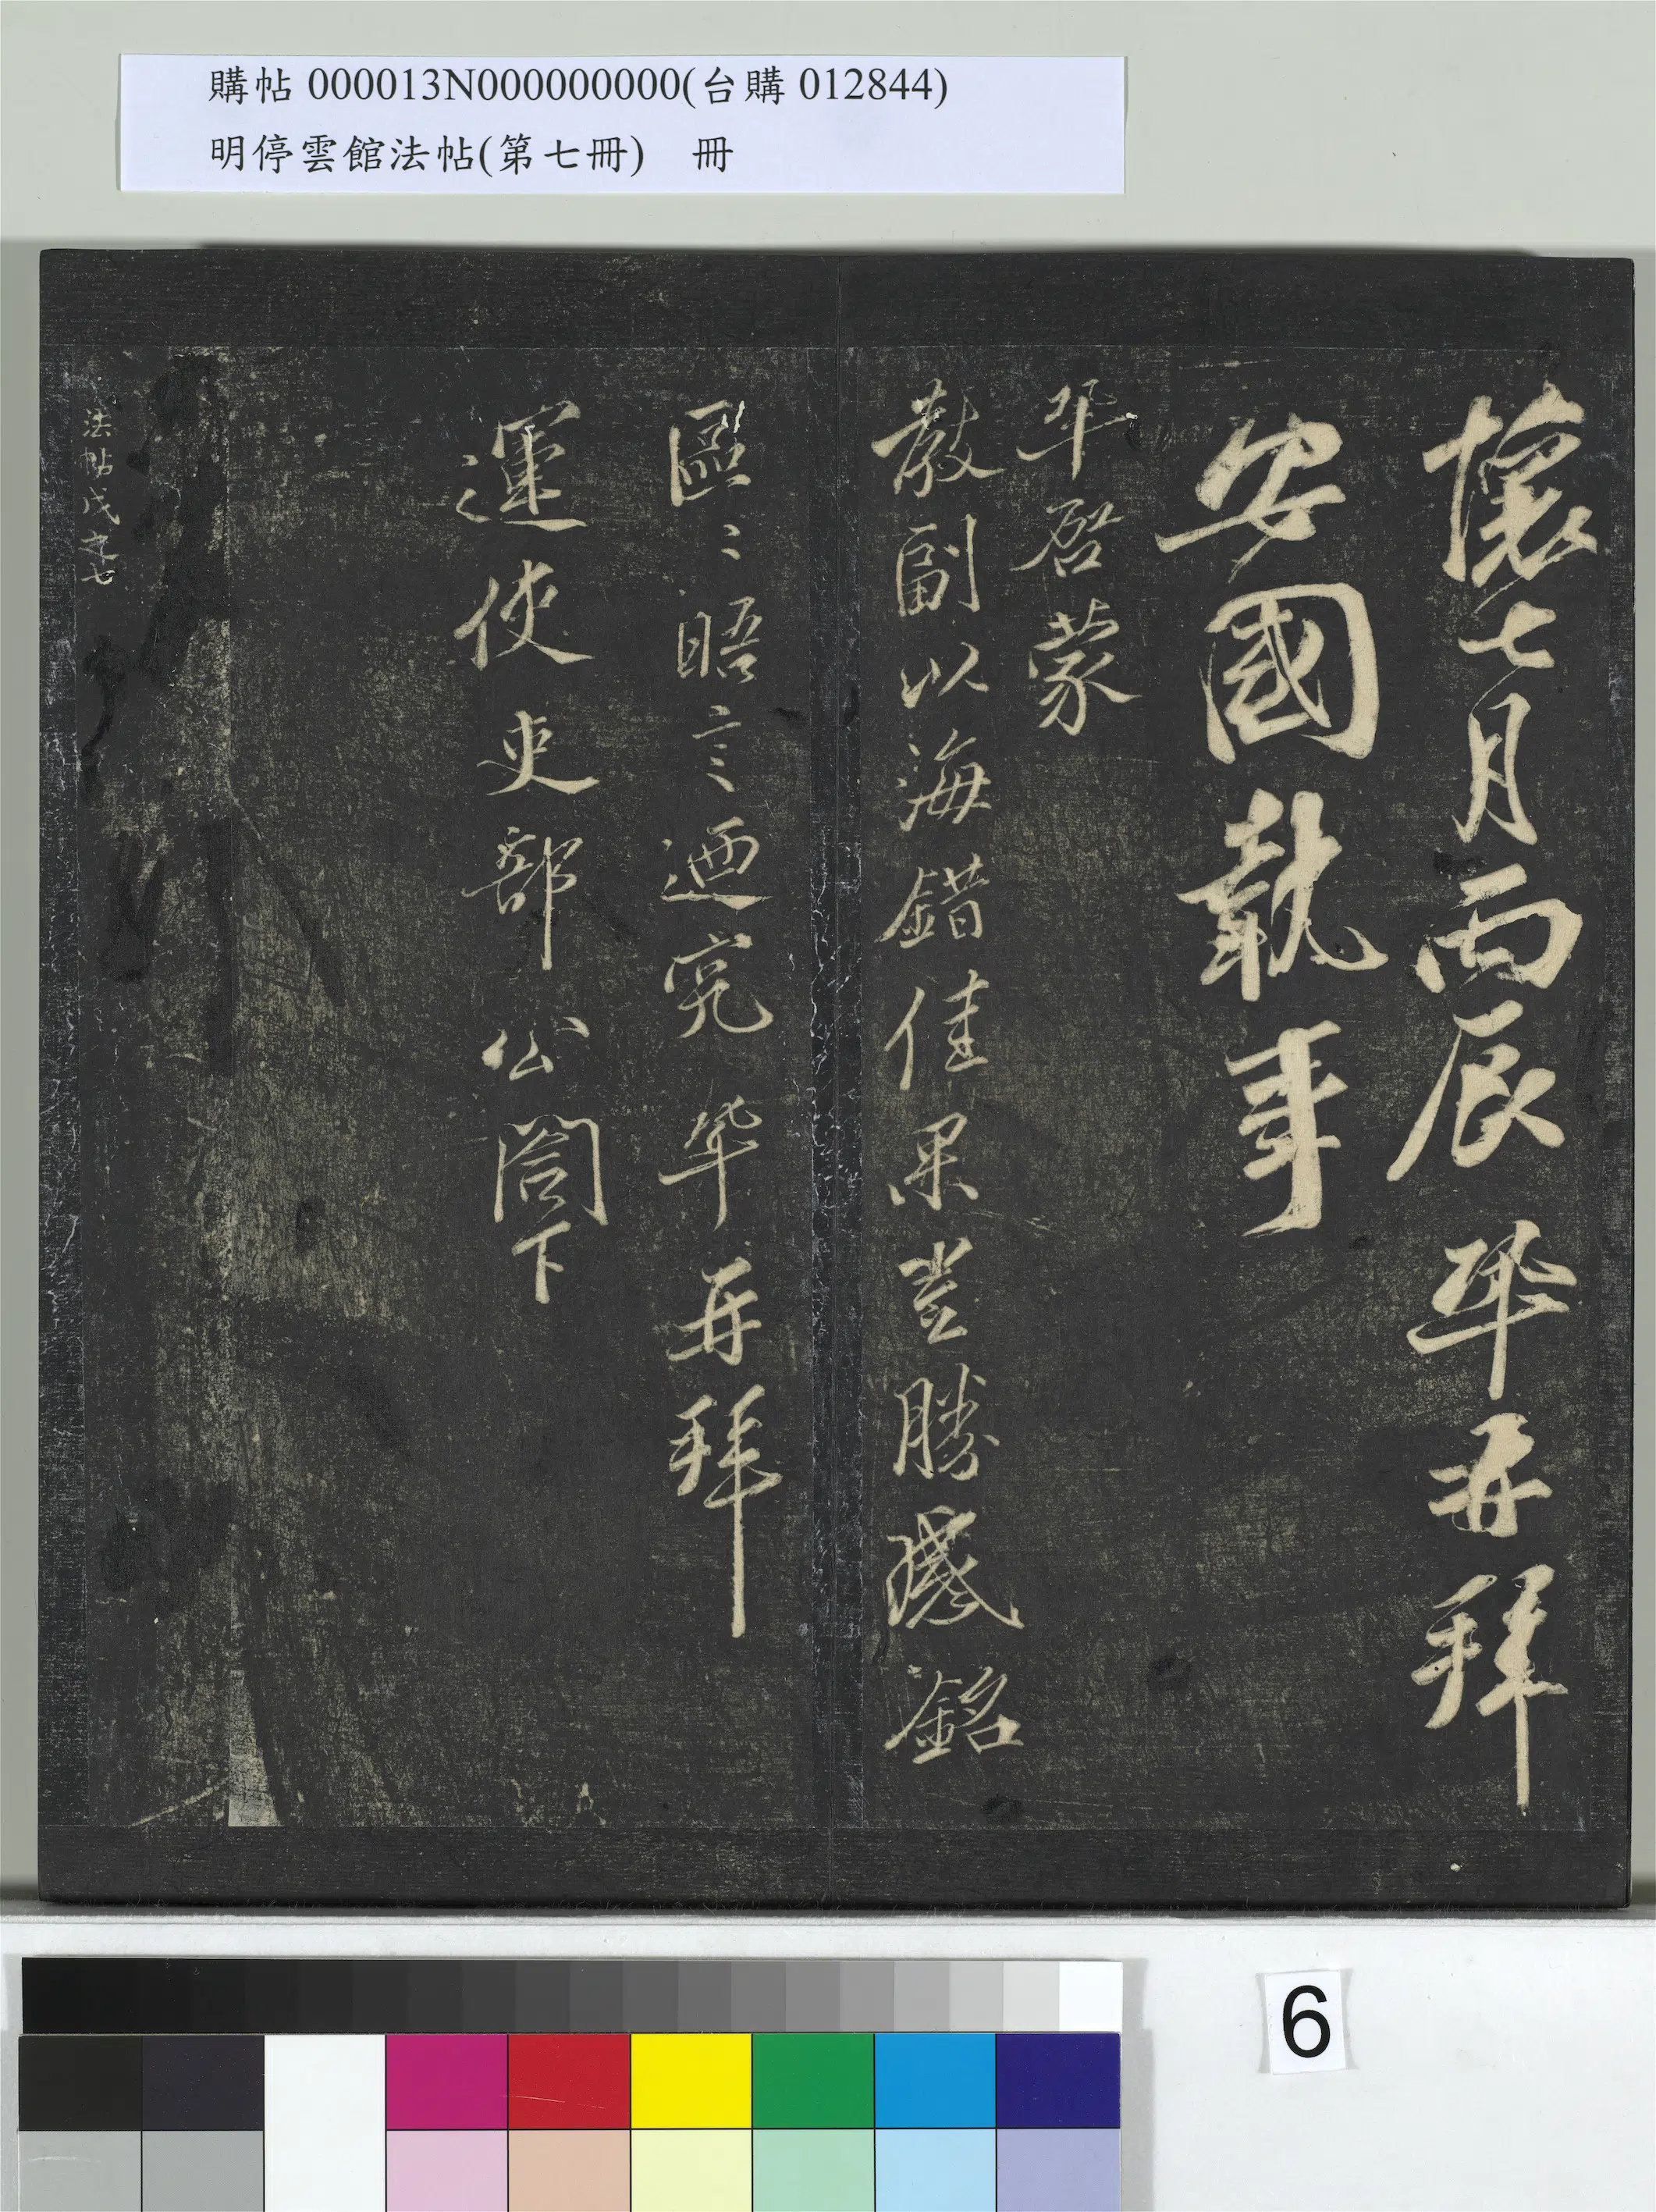 購帖 000013N000000000(台購 012844)
明停雲館法帖(第七冊) 冊
懷七月丙辰 再拜
安國執事
啓蒙
教副以海錯佳果豈勝感銘
區〻晤言迺究 再拜
運使吏部公閤下
法帖戊之七
6